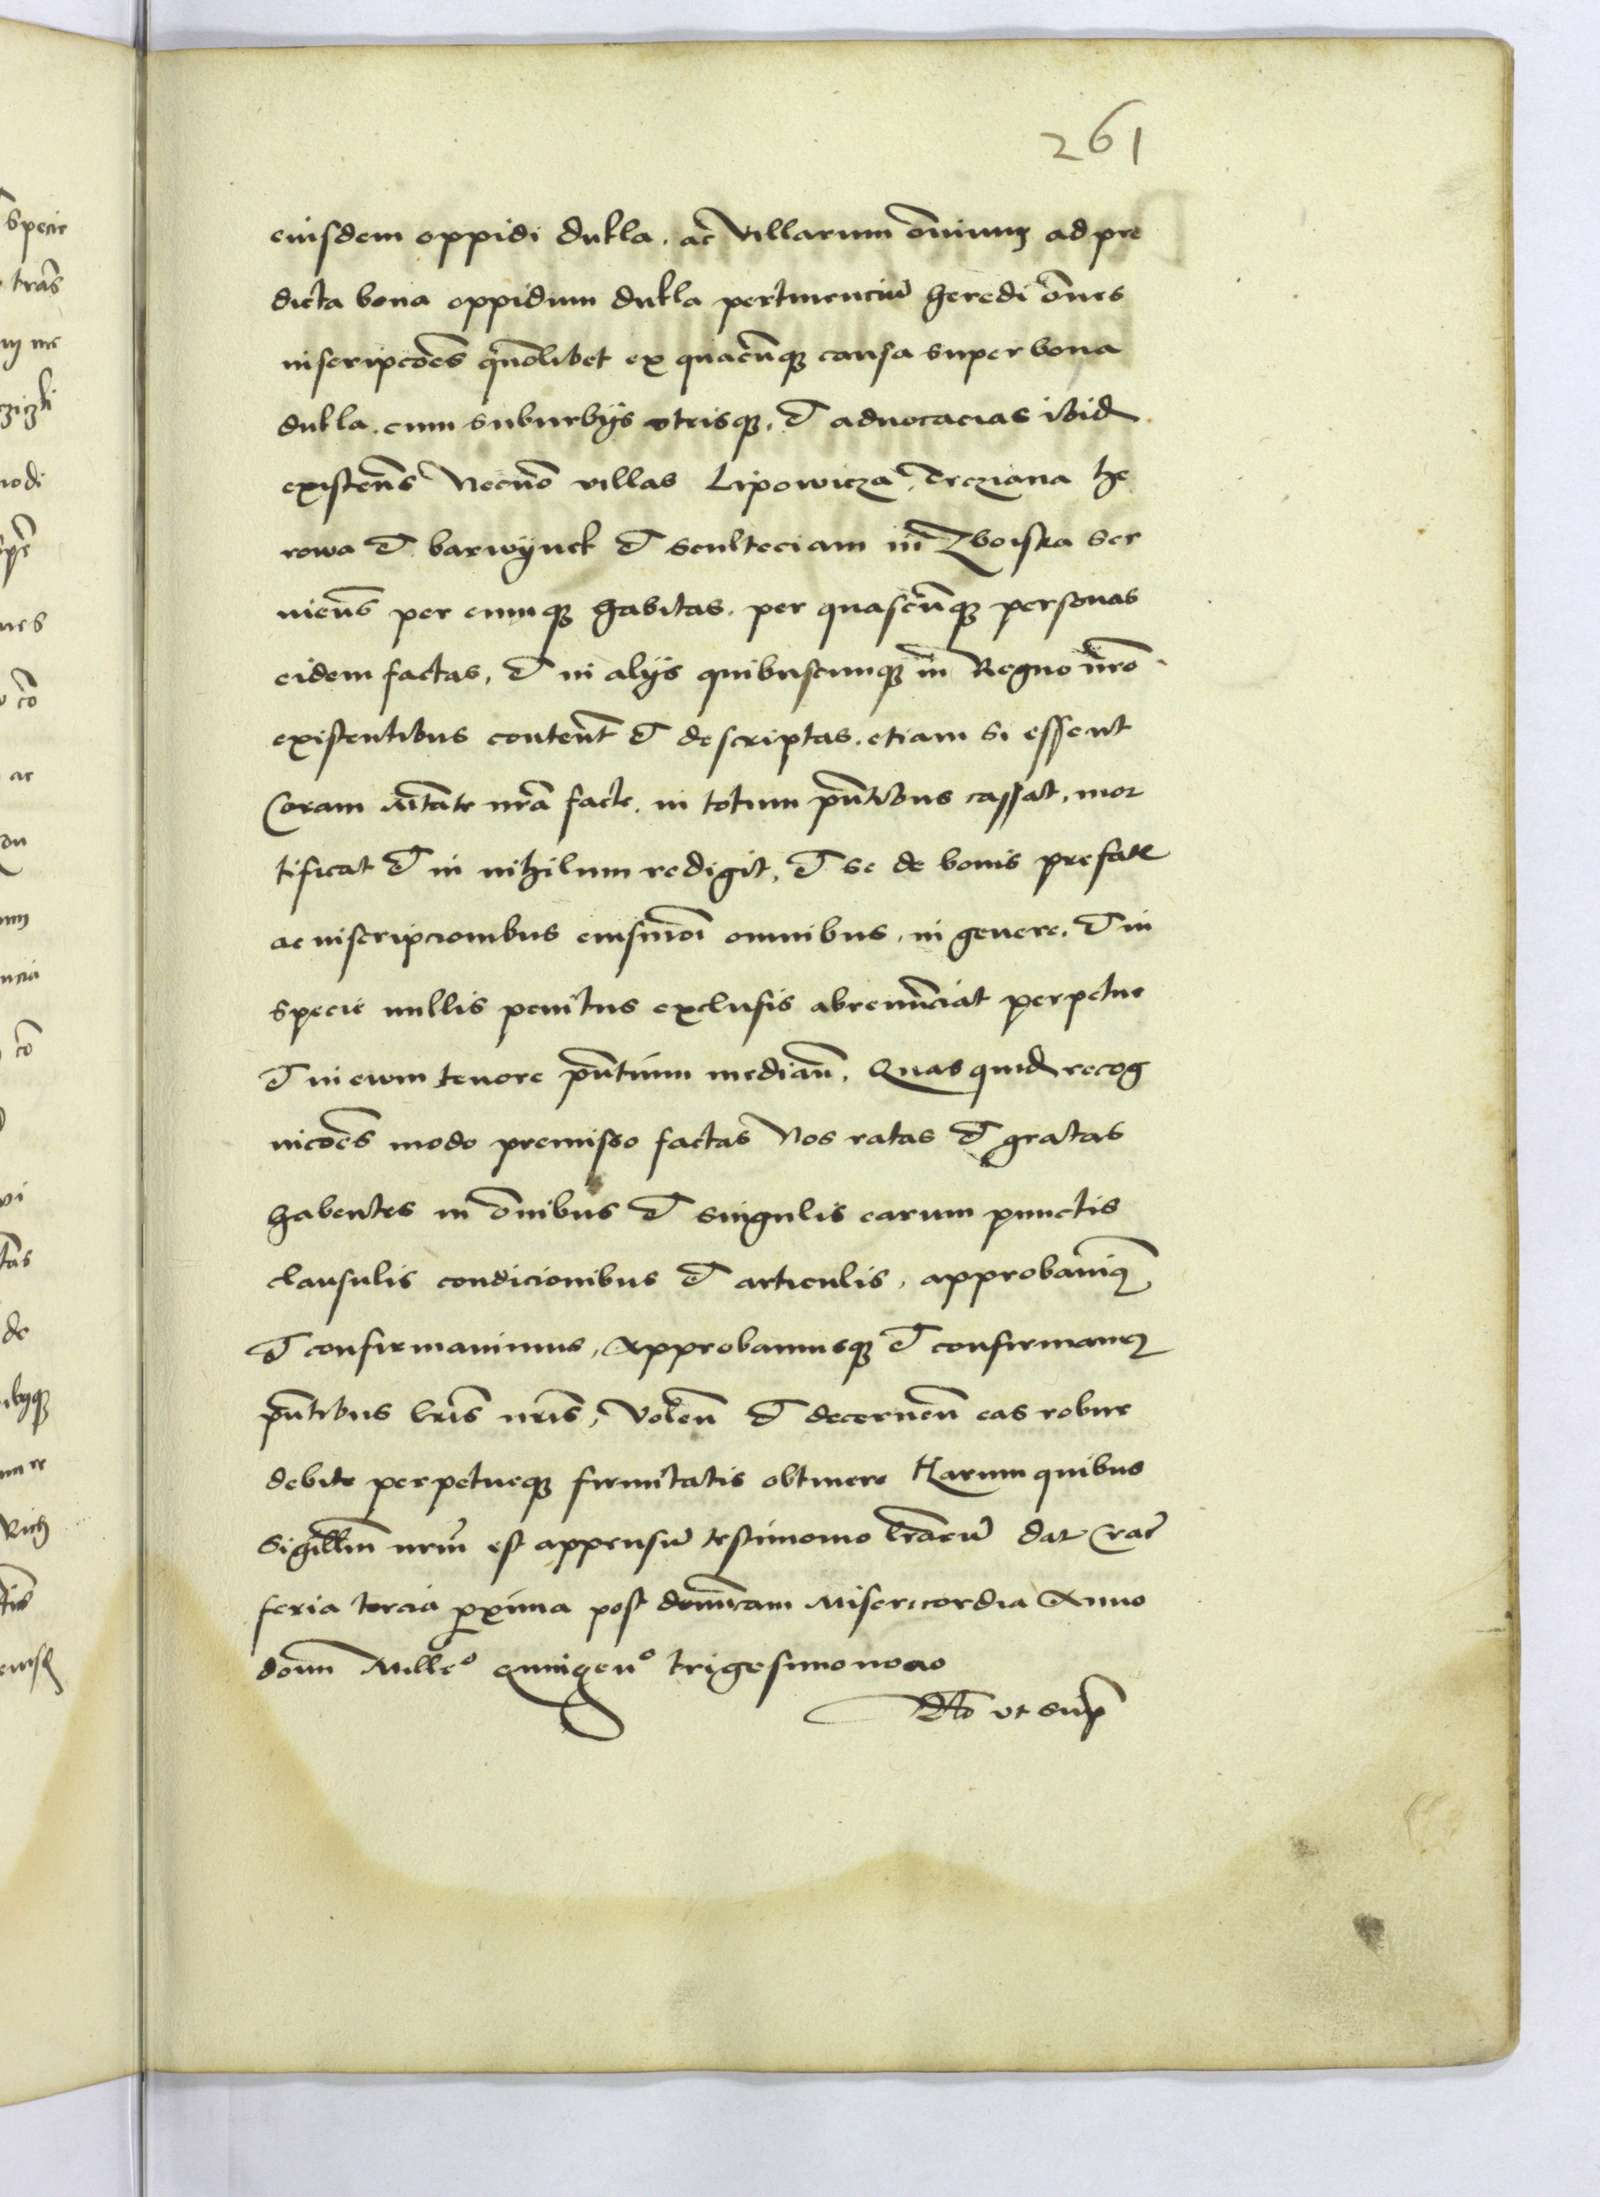 261
eiusdem oppidi dukla. ac Villarum om̅ium ad pre
dicta bona oppidum dukla pertinenciu̅ heredi om̅es
inscripco̅es qu̅olibet ex quacu̅q̨ causa super bona
dukla. cum suburbÿs vtrisq̨. et aduocacias ibid
existen̅s Necno̅ villas Lipowicza, Trcziana he
rowa et barwÿnek et sculteciam in Zboiska ser
vien̅s per eumq̨ habitas. per quascu̅q̨ personas
eidem factas, et in alÿs quibuscumq̨ in Regno nr̅o
existentibus content̅ et descriptas. etiam si essent
Coram M̅tate nr̅a facte. in totum pn̅tibus cassat, mor
tificat et in nihilum redigit, et se de bonis prefat
ac inscripcionibus eiusmo̅i omnibus, in genere, et in
specie nullis penitus exclusis abrenu̅ciat perpetue
et in ewm tenore pn̅tium median̅. Quas quid recog
nico̅es modo premisso factas Nos ratas et gratas
habentes in o̅mibus et singulis earum punctis
clausulis condicionibus et articulis, approbauim9
et confirmauimus, Approbamusq̨ et confirmam9
pn̅tibus lr̅is nr̅is, Volen̅ et decernen̅ eas robur
debite perpetueq̨ firmitatis obtinere Harum quibus
Sigillm̅ nrm̅ est appensu̅ testimonio lr̅aru̅ dat Crac̅
feria tercia proxima post dominicam Misericordia Anno
domi̅ Mill̅o quingen̅o trigesimo nono
R̅o vt sup̅